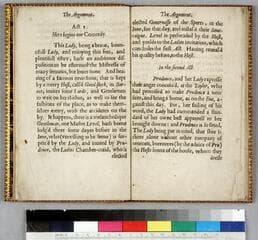 The Argument.
Act 1.
Here begins our Comedy.
This Lady, being a brave, bount-
ifull Lady, and enjoying this free, and
plentifull estate, hath an ambitious dis-
position to be esteemed the Mistresse of
many servants, but loves none. And hea-
ring of a famous new Inne, that is kept
by a merry Host, call'd Good-stock, in Bar-
net, invites some Lords, and Gentlemen
to wait on her thither, as well to see the
fashions of the place, as to make them-
selves merry, with the accidents on the
by. It happens, there is a melancholique
Gentleman, one Master Lovel, hath beene
lodg'd there some dayes before in the
Inne, who (unwilling to be seene) is sur-
prized by the Lady, and invited by Pru-
dence, the Ladies Chamber-maid, who is
elected
The Argument.
elected Governesse of the Sports, in the
Inne, for that day, and install'd their Sove-
raigne. Lovel is perswaded by the Host,
and yeelds to the Ladies invitation, which
concludes the first Act. Having reveal'd
his quality before, to the Host.
In the second Act.
Prudence, and her Lady expresse
their anger conceiv'd, at the Taylor, who
had promised to make Prudence a new
suite, and bring it home, as on the Eve, a-
gainst this day. But, he failing of his
word, the Lady had commanded a stand-
ard of her owne best apparell to be
brought downe; and Prudence is so fitted.
The Lady being put in mind, that she is
there alone without other company of
women, borrowes (by the advice of Pru)
the Hosts sonne of the house, whom they
dresse